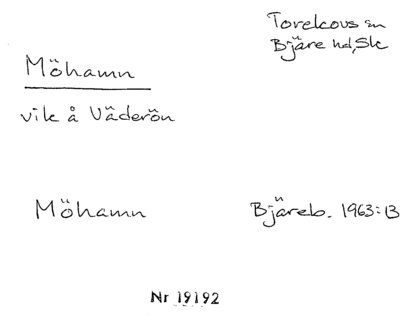 Torekovs sn
Bjäre hd, Sk
Möhamn
vik å Väderön
Möhamn
Bjäreb. 1963:13
Nr 19192